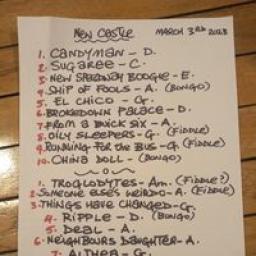 NEW CASTLE MARCH 3RD 2023
1. CANDYMAN - D.
2. SUGAREE - C.
3. NEW SPEEDWAY BOOGIE - E.
4. SHIP OF FOOLS - A. (BONGO)
5. EL CHICO - G.
6. BROKEDOWN PALACE - D.
7. FROM A BUICK SIX - A.
8. OILY SLEEPERS - G. (FIDDLE)
9. RUNNING FOR THE BUS - G. (FIDDLE)
10. CHINA DOLL - (BONGO)
1. TROGLODYTES - Am. (FIDDLE?)
2. SOMEONE ELSE'S WEIRDO - A. (FIDDLE)
3. THINGS HAVE CHANGED - G.
4. RIPPLE - D. (BONGO)
5. DEAL - A.
6. NEIGHBOURS DAUGHTER - A.
7. ALTHEA - G.